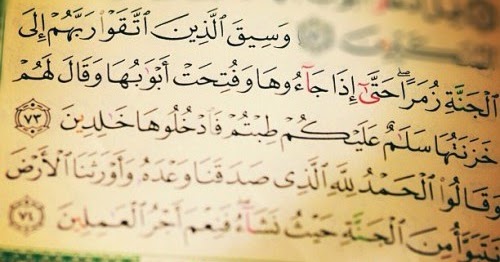 وَسِيقَ ٱلَّذِينَ ٱتَّقَوْا۟ رَبَّهُمْ إِلَى
ٱلْجَنَّةِ زُمَرًا ۖ حَتَّىٰٓ إِذَا جَآءُوهَا وَفُتِحَتْ أَبْوَٰبُهَا وَقَالَ لَهُمْ
خَزَنَتُهَا سَلَـٰمٌ عَلَيْكُمْ طِبْتُمْ فَٱدْخُلُوهَا خَـٰلِدِينَ ﴿٧٣﴾
وَقَالُوا۟ ٱلْحَمْدُ لِلَّهِ ٱلَّذِى صَدَقَنَا وَعْدَهُۥ وَأَوْرَثَنَا ٱلْأَرْضَ
نَتَبَوَّأُ مِنَ ٱلْجَنَّةِ حَيْثُ نَشَآءُ ۖ فَنِعْمَ أَجْرُ ٱلْعَـٰمِلِينَ ﴿٧٤﴾